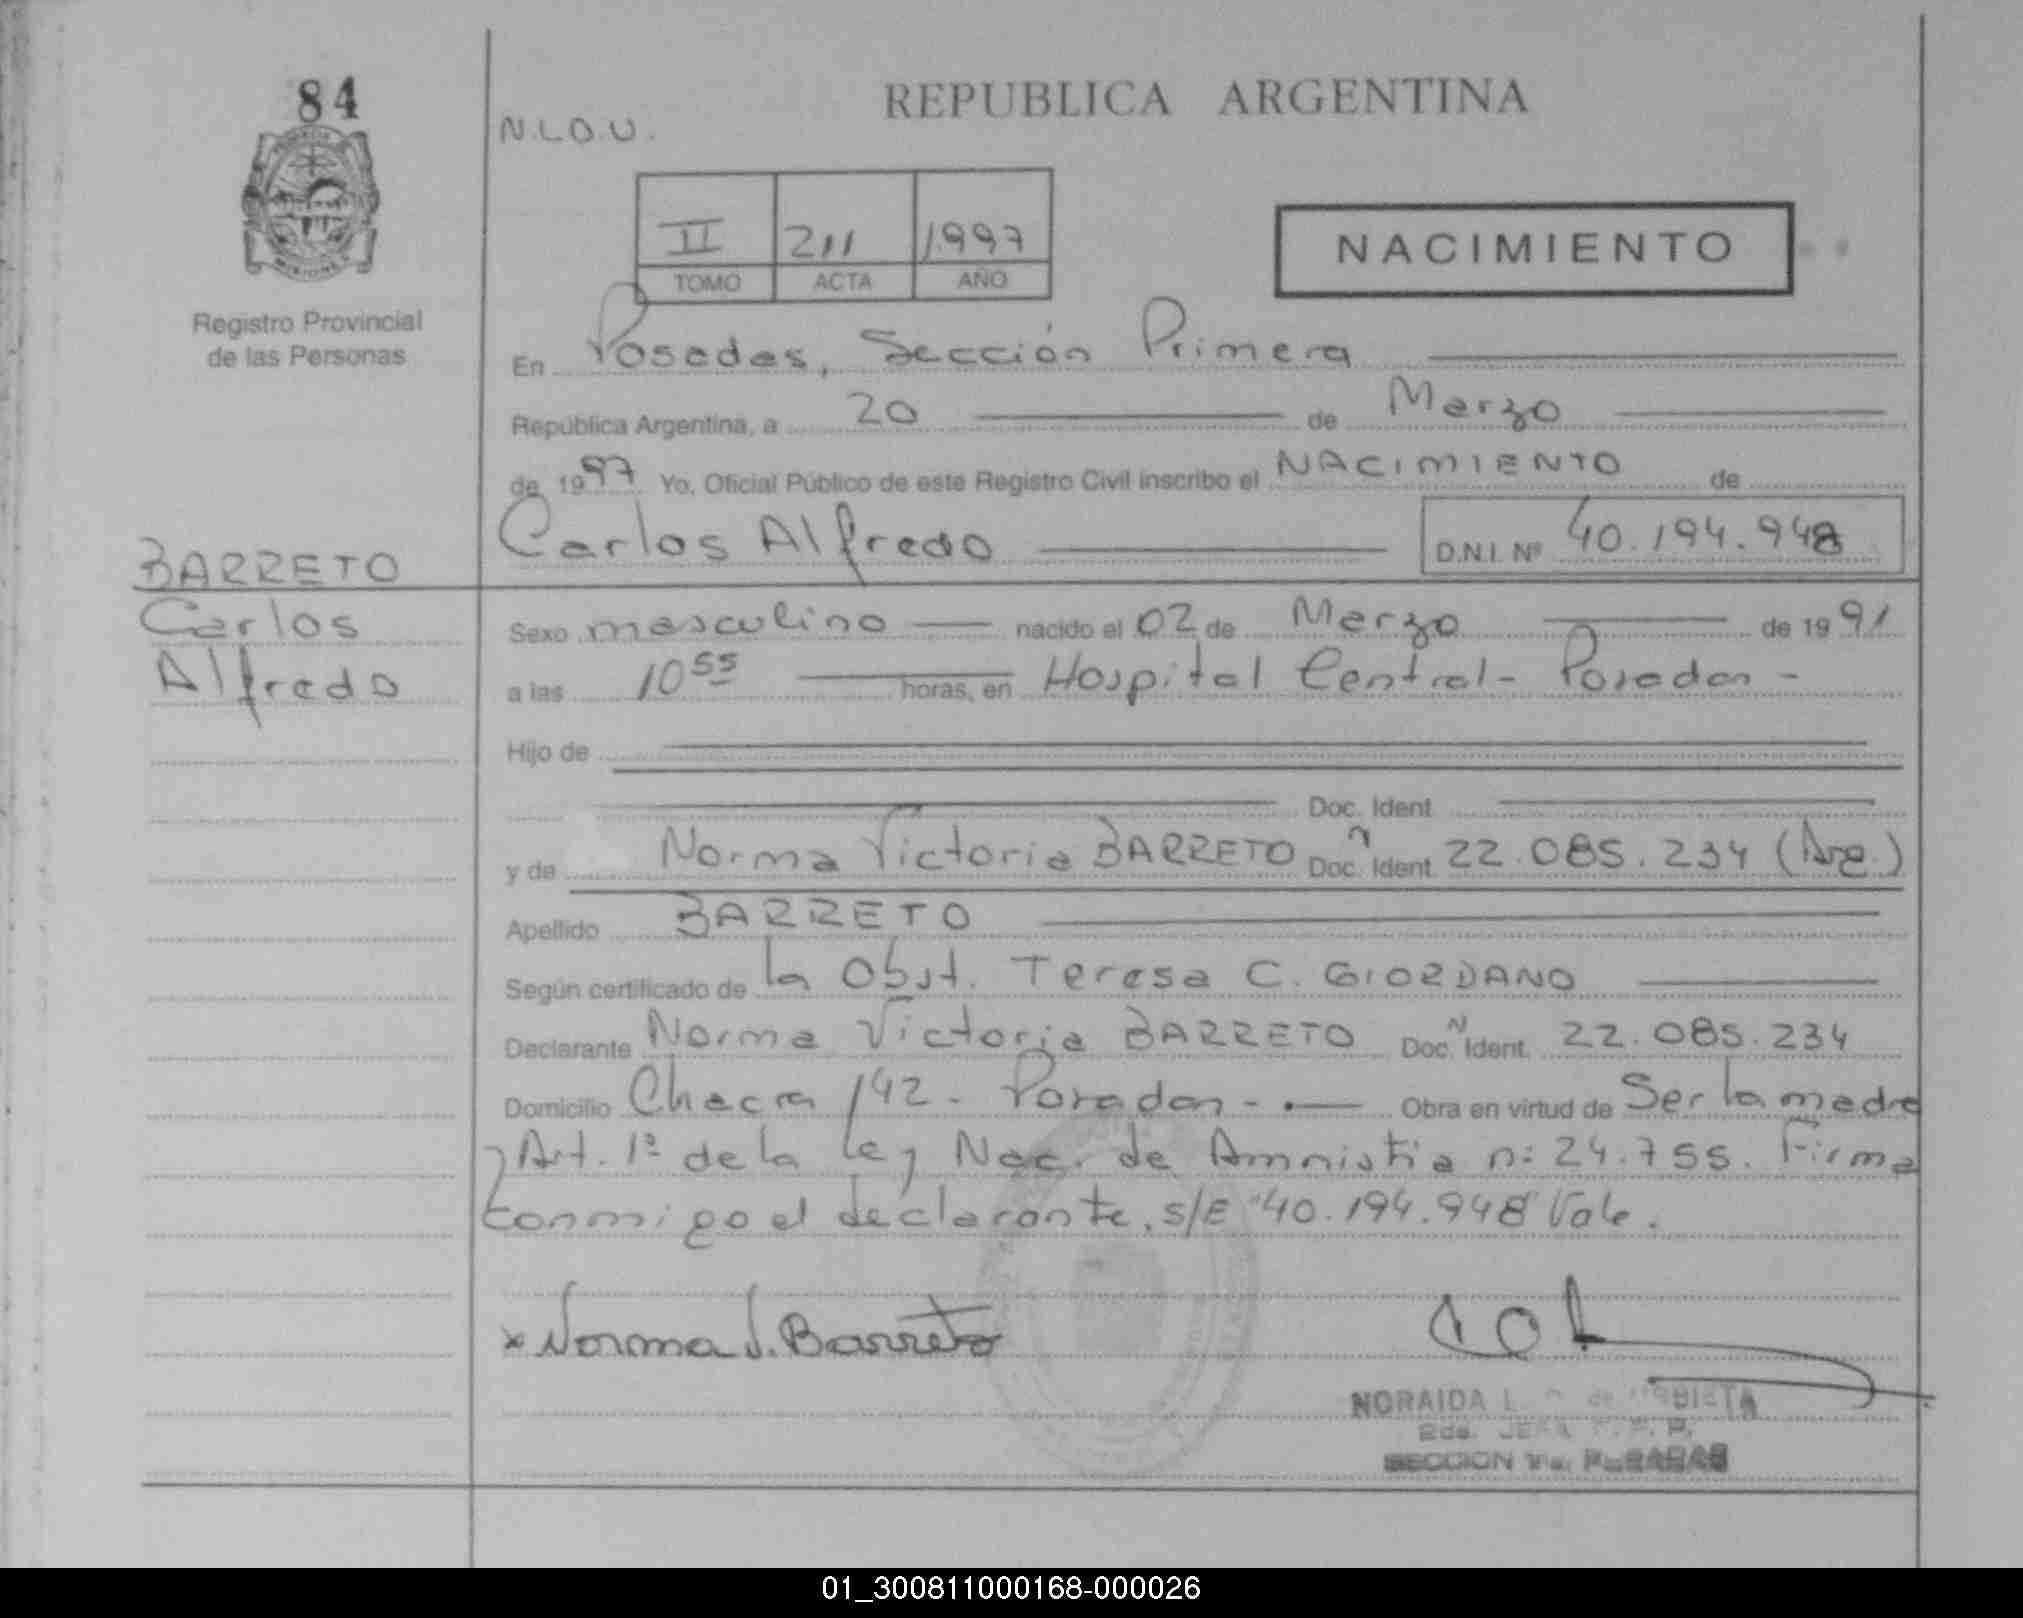 84
REPUBLICA ARGENTINA
N.L.O.U.
II 211 1997
TOMO ACTA AÑO
NACIMIENTO
MISIONES
Registro Provincial
de las Personas
En Posadas, Sección Primera
República Argentina, a 20 de Marzo
de 1997 Yo, Oficial Público de este Registro Civil inscribo el NACIMIENTO de
Carlos Alfredo D.N.I. Nº 40.194.948
BARRETO
Carlos
Alfredo
Sexo masculino nacido el 02 de Marzo de 1991
a las 10 55 horas, en Hospital Central - Posadas -
Hijo de
Doc. Ident.
y de Norma Victoria BARRETO Doc. Ident. 22.085.234 (Arg.)
Apellido BARRETO
Según certificado de la Obst. Teresa C. GIORDANO
Declarante Norma Victoria BARRETO Doc. Ident. 22.085.234
Domicilio Chacra 142 - Posadas - . — Obra en virtud de Ser la madre
Art. 1º de la Ley Nac. de Amnistia nº 24.755. Firma
conmigo el declarante. s/E "40.194.948" Vale.
x Norma V. Barreto
NORAIDA L. de
2da. JEFA
SECCION 1ra. POSADAS
01_300811000168-000026